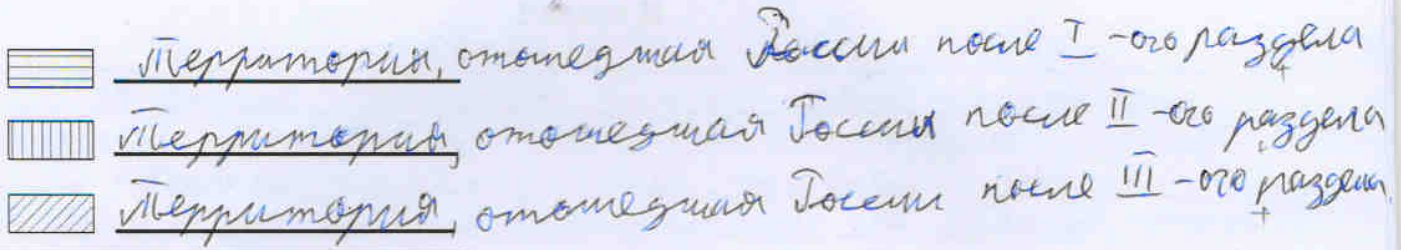 Территория, отошедшая России после I-ого раздела
Территория, отошедшая России после II-ого раздела
Территория, отошедшая России после III-ого раздела